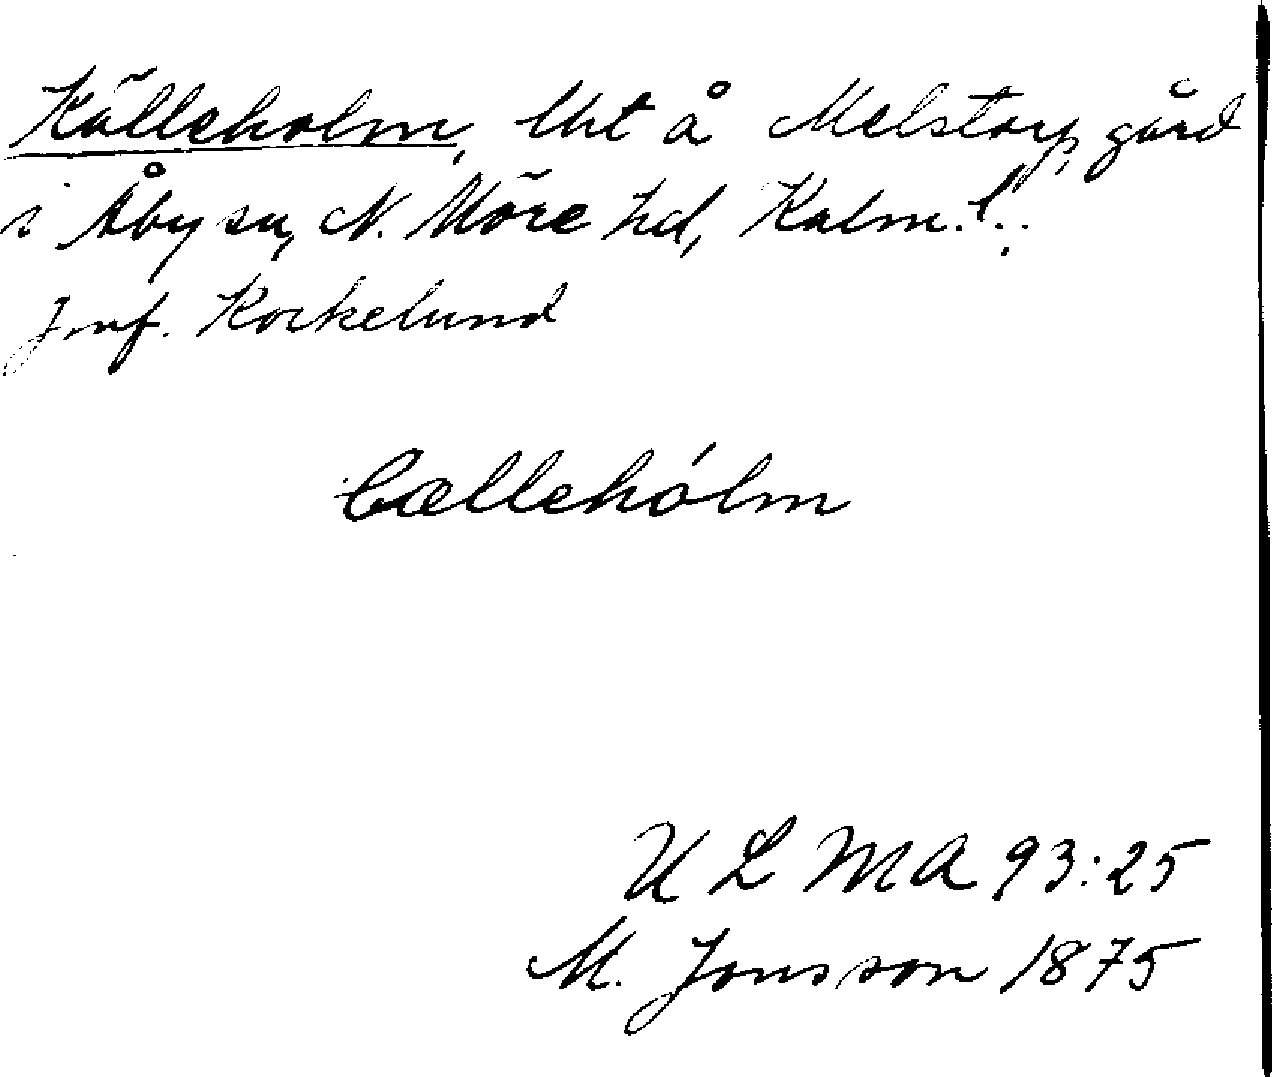 Källeholm, Uht å Melstorp, gård
i Åby sn, N. Möre hd, Kalm. l.
Jmf. Kockelund
Cælleholm
U L M A 93:25
M. Jonsson 1875